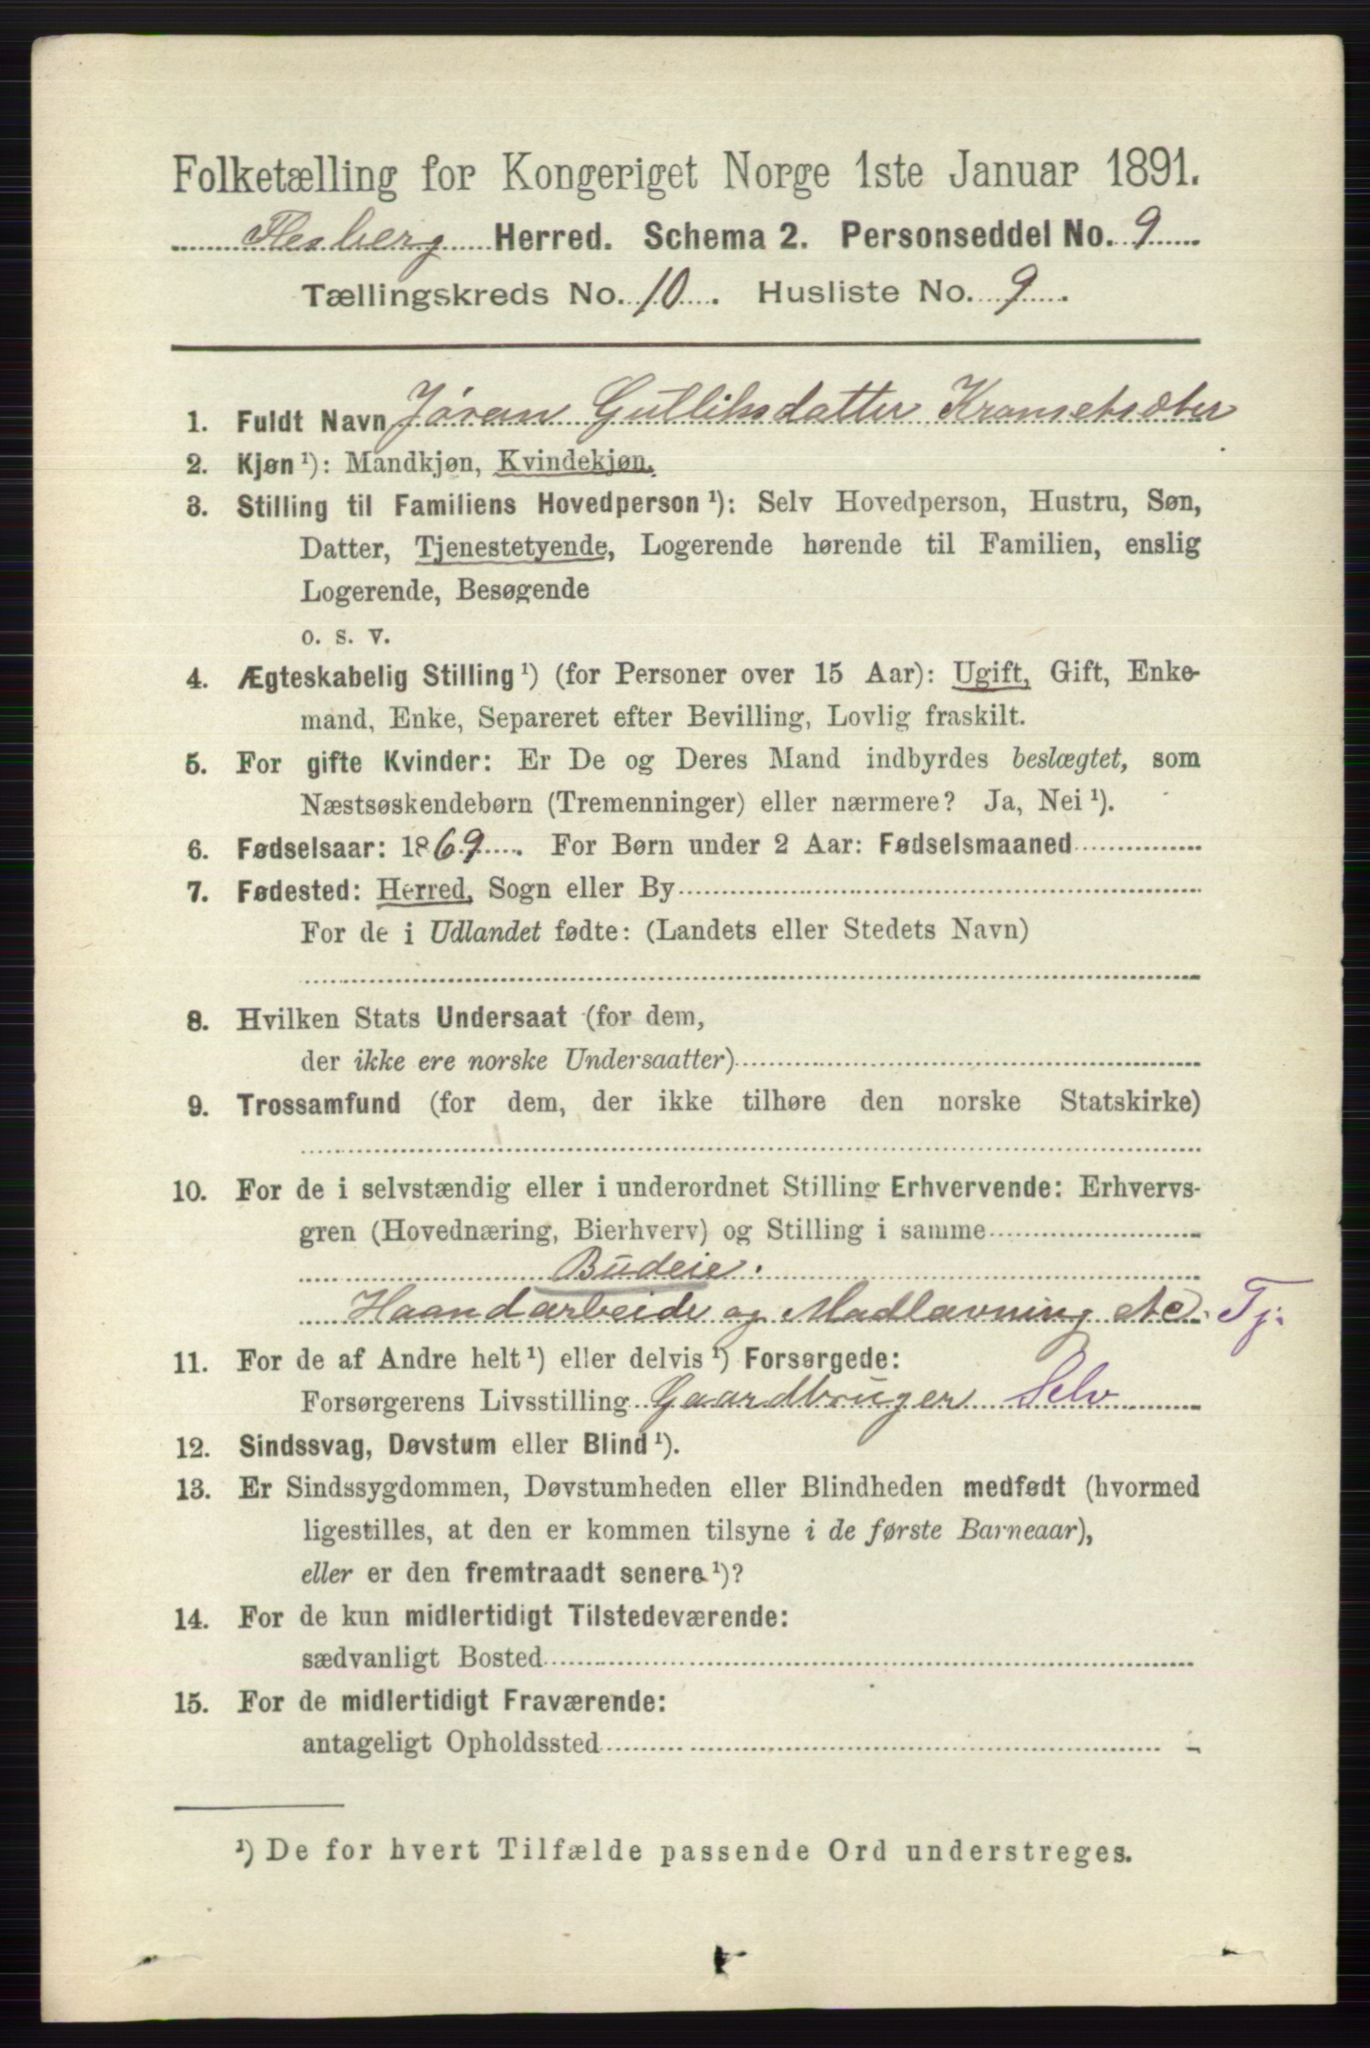 Folketælling for Kongeriget Norge 1ste Januar 1891.
Flesberg Herred. Schema 2. Personseddel No. 9
Tællingskreds No. 10. Husliste No. 9.
1. Fuldt Navn Jøran Gulliksdatter
2. Kjøn ¹): Mandkjøn, Kvindekjøn.
3. Stilling til Familiens Hovedperson ¹): Selv Hovedperson, Hustru, Søn,
Datter, Tjenestetyende, Logerende hørende til Familien, enslig
Logerende, Besøgende
o. s. v.
4. Ægteskabelig Stilling ¹) (for Personer over 15 Aar): Ugift, Gift, Enke-
mand, Enke, Separeret efter Bevilling, Lovlig fraskilt.
5. For gifte Kvinder: Er De og Deres Mand indbyrdes beslægtet, som
Næstsøskendebørn (Tremenninger) eller nærmere? Ja, Nei ¹).
6. Fødselsaar: 1869. For Børn under 2 Aar: Fødselsmaaned
7. Fødested: Herred, Sogn eller By
For de i Udlandet fødte: (Landets eller Stedets Navn)
8. Hvilken Stats Undersaat (for dem,
der ikke ere norske Undersaatter)
9. Trossamfund (for dem, der ikke tilhøre den norske Statskirke)
10. For de i selvstændig eller i underordnet Stilling Erhvervende: Erhvervs-
gren (Hovednæring, Bierhverv) og Stilling i samme
Budeie.
Haandarbeide og Madlavning etc. Tj.
11. For de af Andre helt ¹) eller delvis ¹) Forsørgede:
Forsørgerens Livsstilling Gaardbruger Selv
12. Sindssvag, Døvstum eller Blind ¹).
13. Er Sindssygdommen, Døvstumheden eller Blindheden medfødt (hvormed
ligestilles, at den er kommen tilsyne i de første Barneaar),
eller er den fremtraadt senere ¹)?
14. For de kun midlertidigt Tilstedeværende:
sædvanligt Bosted
15. For de midlertidigt Fraværende:
antageligt Opholdssted
¹) De for hvert Tilfælde passende Ord understreges.